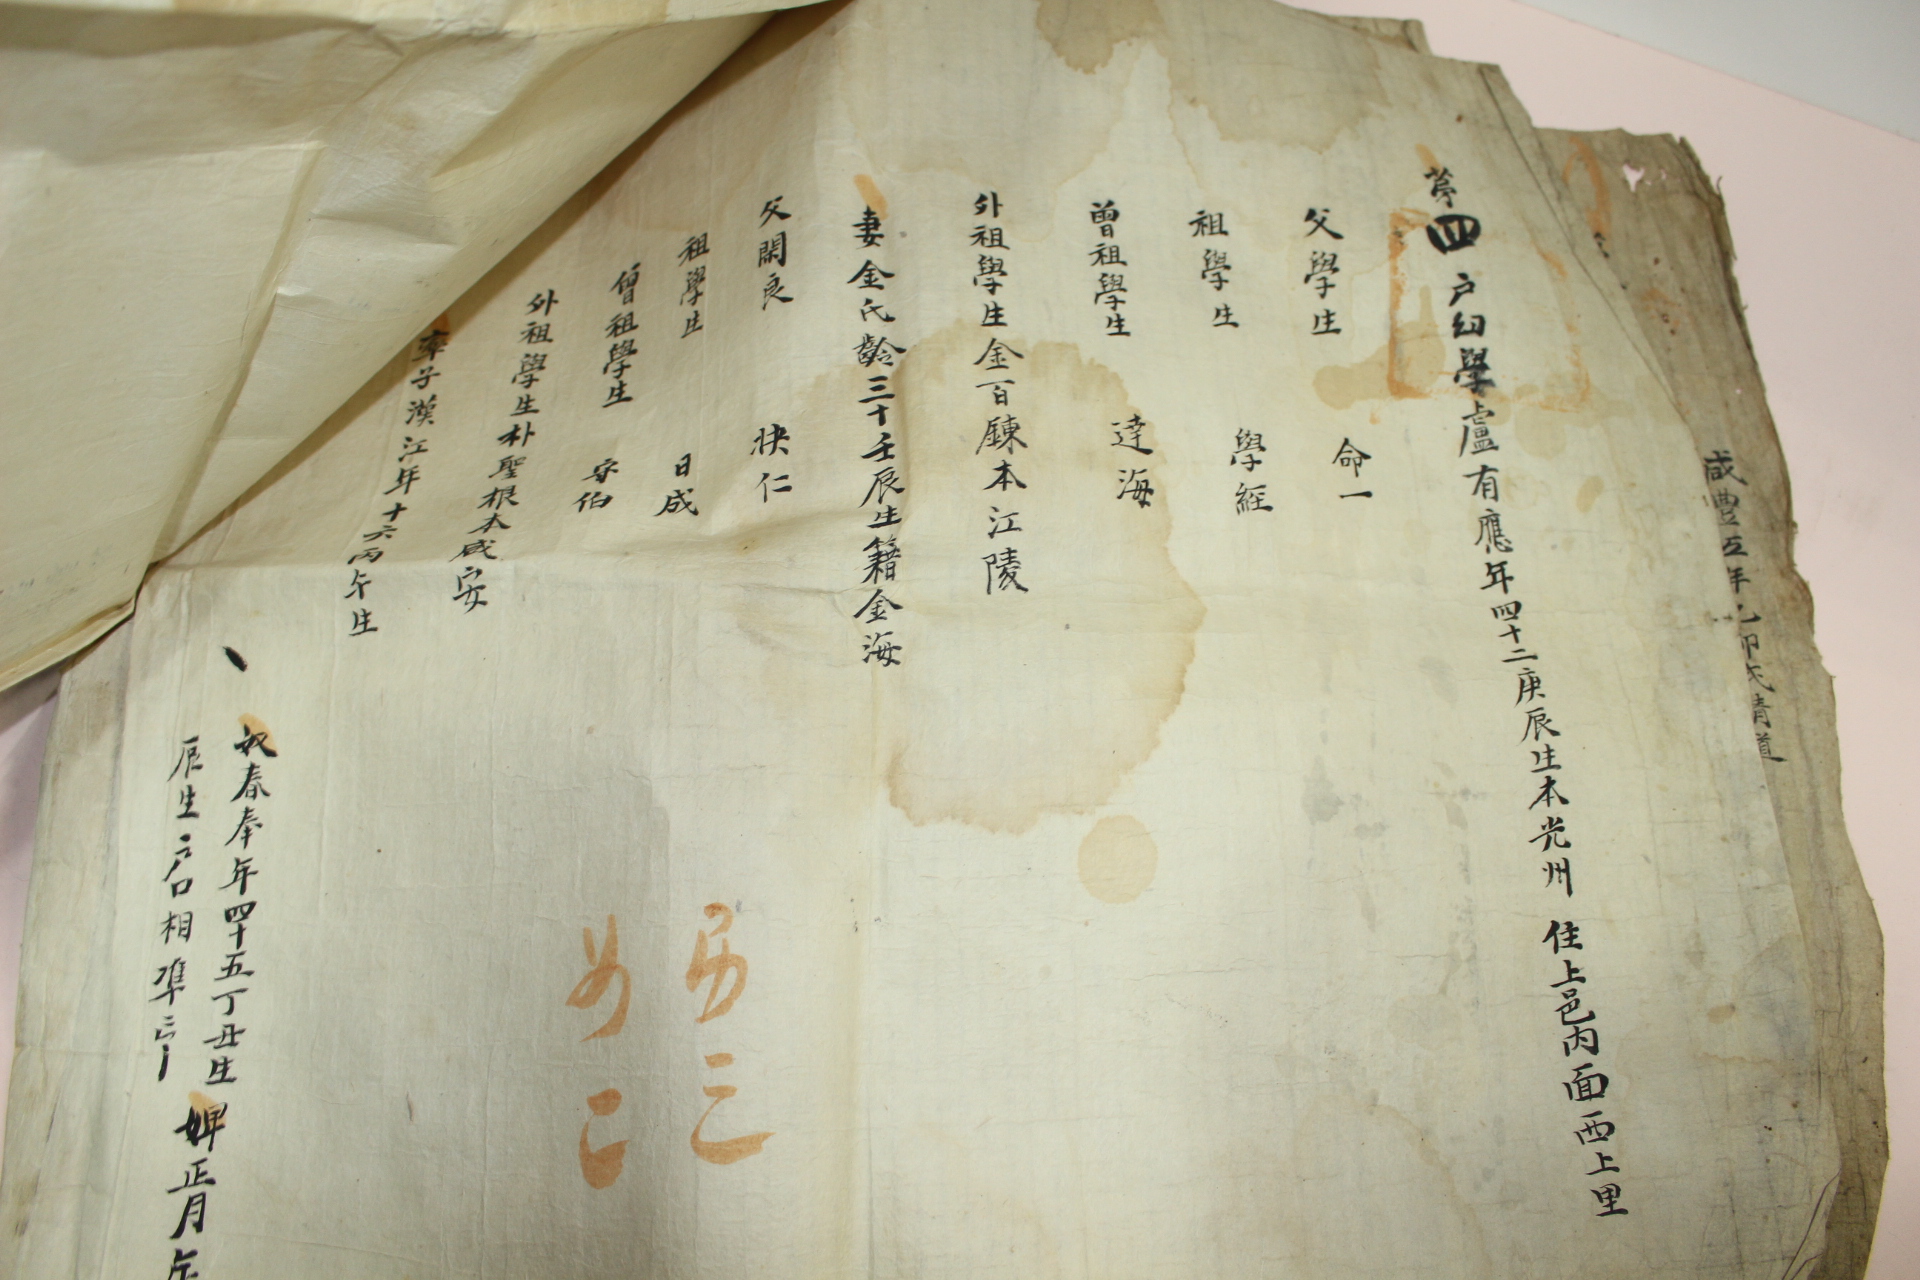 咸豊五年乙卯式清道
苐四戶幼學盧有應年四十二庚辰生本光州 住上邑內面西上里
父學生 命一
祖學生 學經
曾祖學生 達海
外祖學生金百鍊本江陵
妻金氏齡三十壬辰生籍金海
父閑良 仁
祖學生 日成
曾祖學生 守伯
外祖學生朴聖根本咸安
率子漢江年十六丙午生
奴春奉年四十五丁丑生 婢正月年
辰生 戶口相準
男三
女二